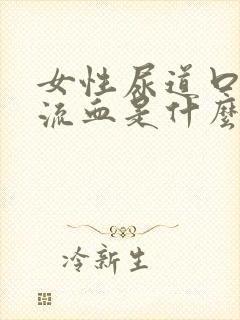 女性尿道口
流血是什麼
冷新生